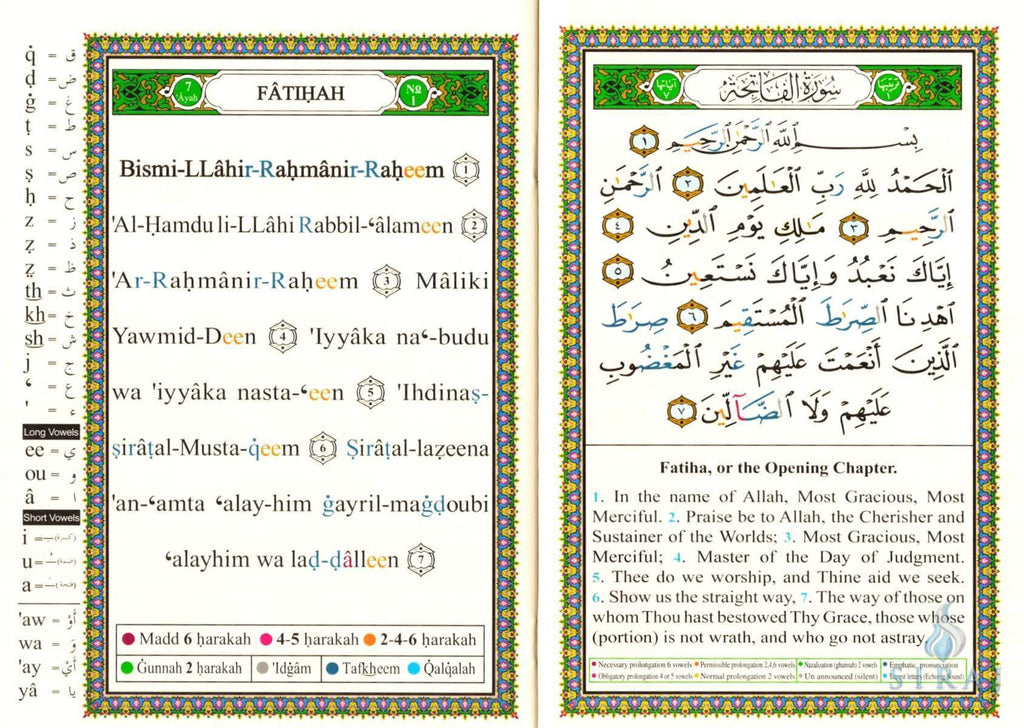 q̇ = ق
ḍ = ض
ġ = غ
ṭ = ط
s = س
ṣ = ص
ḥ = ح
z = ز
ẓ = ذ
ẓ = ظ
th = ث
kh = خ
sh = ش
j = ج
ʿ = ع
' = ء
Long Vowels
ee = ي
ou = و
â = ا
Short Vowels
i =
u =
a =
'aw = أَوْ
wa = وَ
'ay = أَيْ
yâ = يا
7 Âyah
FÂTIḤAH
No 1
Bismi-LLâhir-Raḥmânir-Raḥeem 1
'Al-Ḥamdu li-LLâhi Rabbil-ʿâlameen 2
'Ar-Raḥmânir-Raḥeem 3 Mâliki
Yawmid-Deen 4 'Iyyâka naʿ-budu
wa 'iyyâka nasta-ʿeen 5 'Ihdinaṣ-
ṣirâṭal-Musta-q̇eem 6 Ṣirâṭal-laẓeena
'an-ʿamta ʿalay-him ġayril-maġḍoubi
ʿalayhim wa laḍ-ḍâlleen 7
Madd 6 ḥarakah 4-5 ḥarakah 2-4-6 ḥarakah
Ġunnah 2 ḥarakah 'Idġâm Tafkheem Q̇alq̇alah
آياتها ٧
سُورَةُ الفَاتِحَةِ
ترتيبها
بِسْمِ ٱللَّهِ ٱلرَّحْمَٰنِ ٱلرَّحِيمِ ١
ٱلْحَمْدُ لِلَّهِ رَبِّ ٱلْعَٰلَمِينَ ٢ ٱلرَّحْمَٰنِ
ٱلرَّحِيمِ ٣ مَٰلِكِ يَوْمِ ٱلدِّينِ ٤
إِيَّاكَ نَعْبُدُ وَإِيَّاكَ نَسْتَعِينُ ٥
ٱهْدِنَا ٱلصِّرَٰطَ ٱلْمُسْتَقِيمَ ٦ صِرَٰطَ
ٱلَّذِينَ أَنْعَمْتَ عَلَيْهِمْ غَيْرِ ٱلْمَغْضُوبِ
عَلَيْهِمْ وَلَا ٱلضَّآلِّينَ ٧
Fatiha, or the Opening Chapter.
1. In the name of Allah, Most Gracious, Most
Merciful. 2. Praise be to Allah, the Cherisher and
Sustainer of the Worlds; 3. Most Gracious, Most
Merciful; 4. Master of the Day of Judgment.
5. Thee do we worship, and Thine aid we seek.
6. Show us the straight way, 7. The way of those on
whom Thou hast bestowed Thy Grace, those whose
(portion) is not wrath, and who go not astray.
Necessary prolongation 6 vowels Permissible prolongation 2,4,6 vowels Nazalization (ghunnah) 2 vowels Emphatic pronunciation
Obligatory prolongation 4 or 5 vowels Normal prolongation 2 vowels Un announced (silent) Unrest letters (Echoing Sound)
SIRAJ